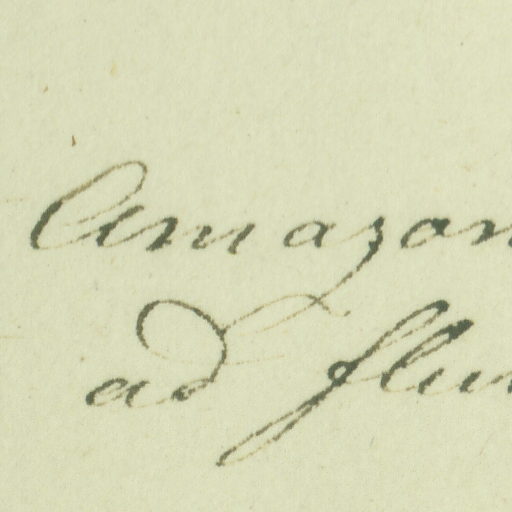 Amazon
ad flu